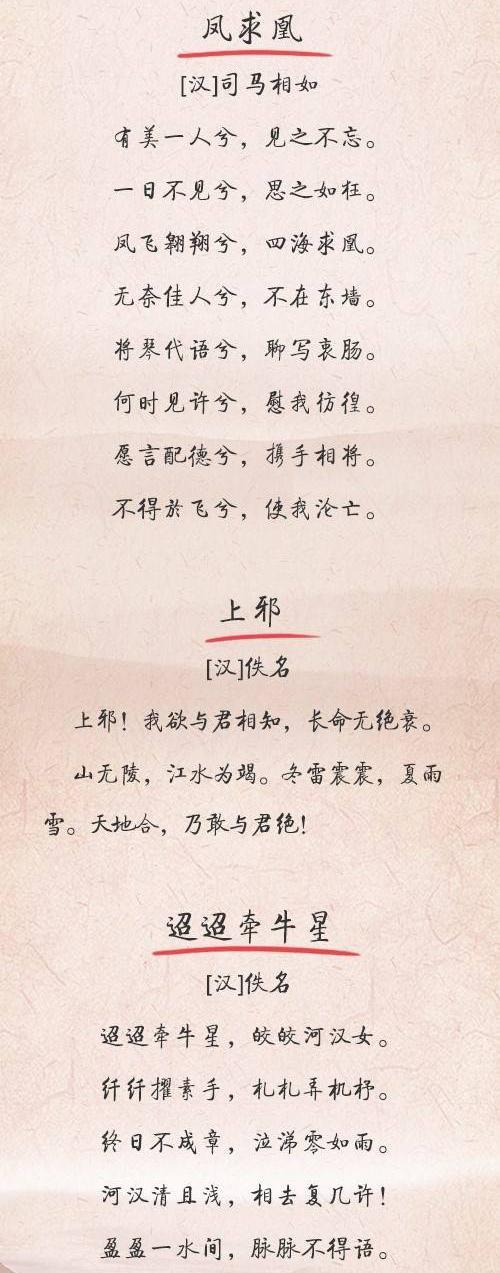 凤求凰
[汉]司马相如
有美一人兮，见之不忘。
一日不见兮，思之如狂。
凤飞翱翔兮，四海求凰。
无奈佳人兮，不在东墙。
将琴代语兮，聊写衷肠。
何时见许兮，慰我彷徨。
愿言配德兮，携手相将。
不得於飞兮，使我沦亡。
上邪
[汉]佚名
上邪！我欲与君相知，长命无绝衰。
山无陵，江水为竭。冬雷震震，夏雨
雪。天地合，乃敢与君绝！
迢迢牵牛星
[汉]佚名
迢迢牵牛星，皎皎河汉女。
纤纤擢素手，札札弄机杼。
终日不成章，泣涕零如雨。
河汉清且浅，相去复几许！
盈盈一水间，脉脉不得语。